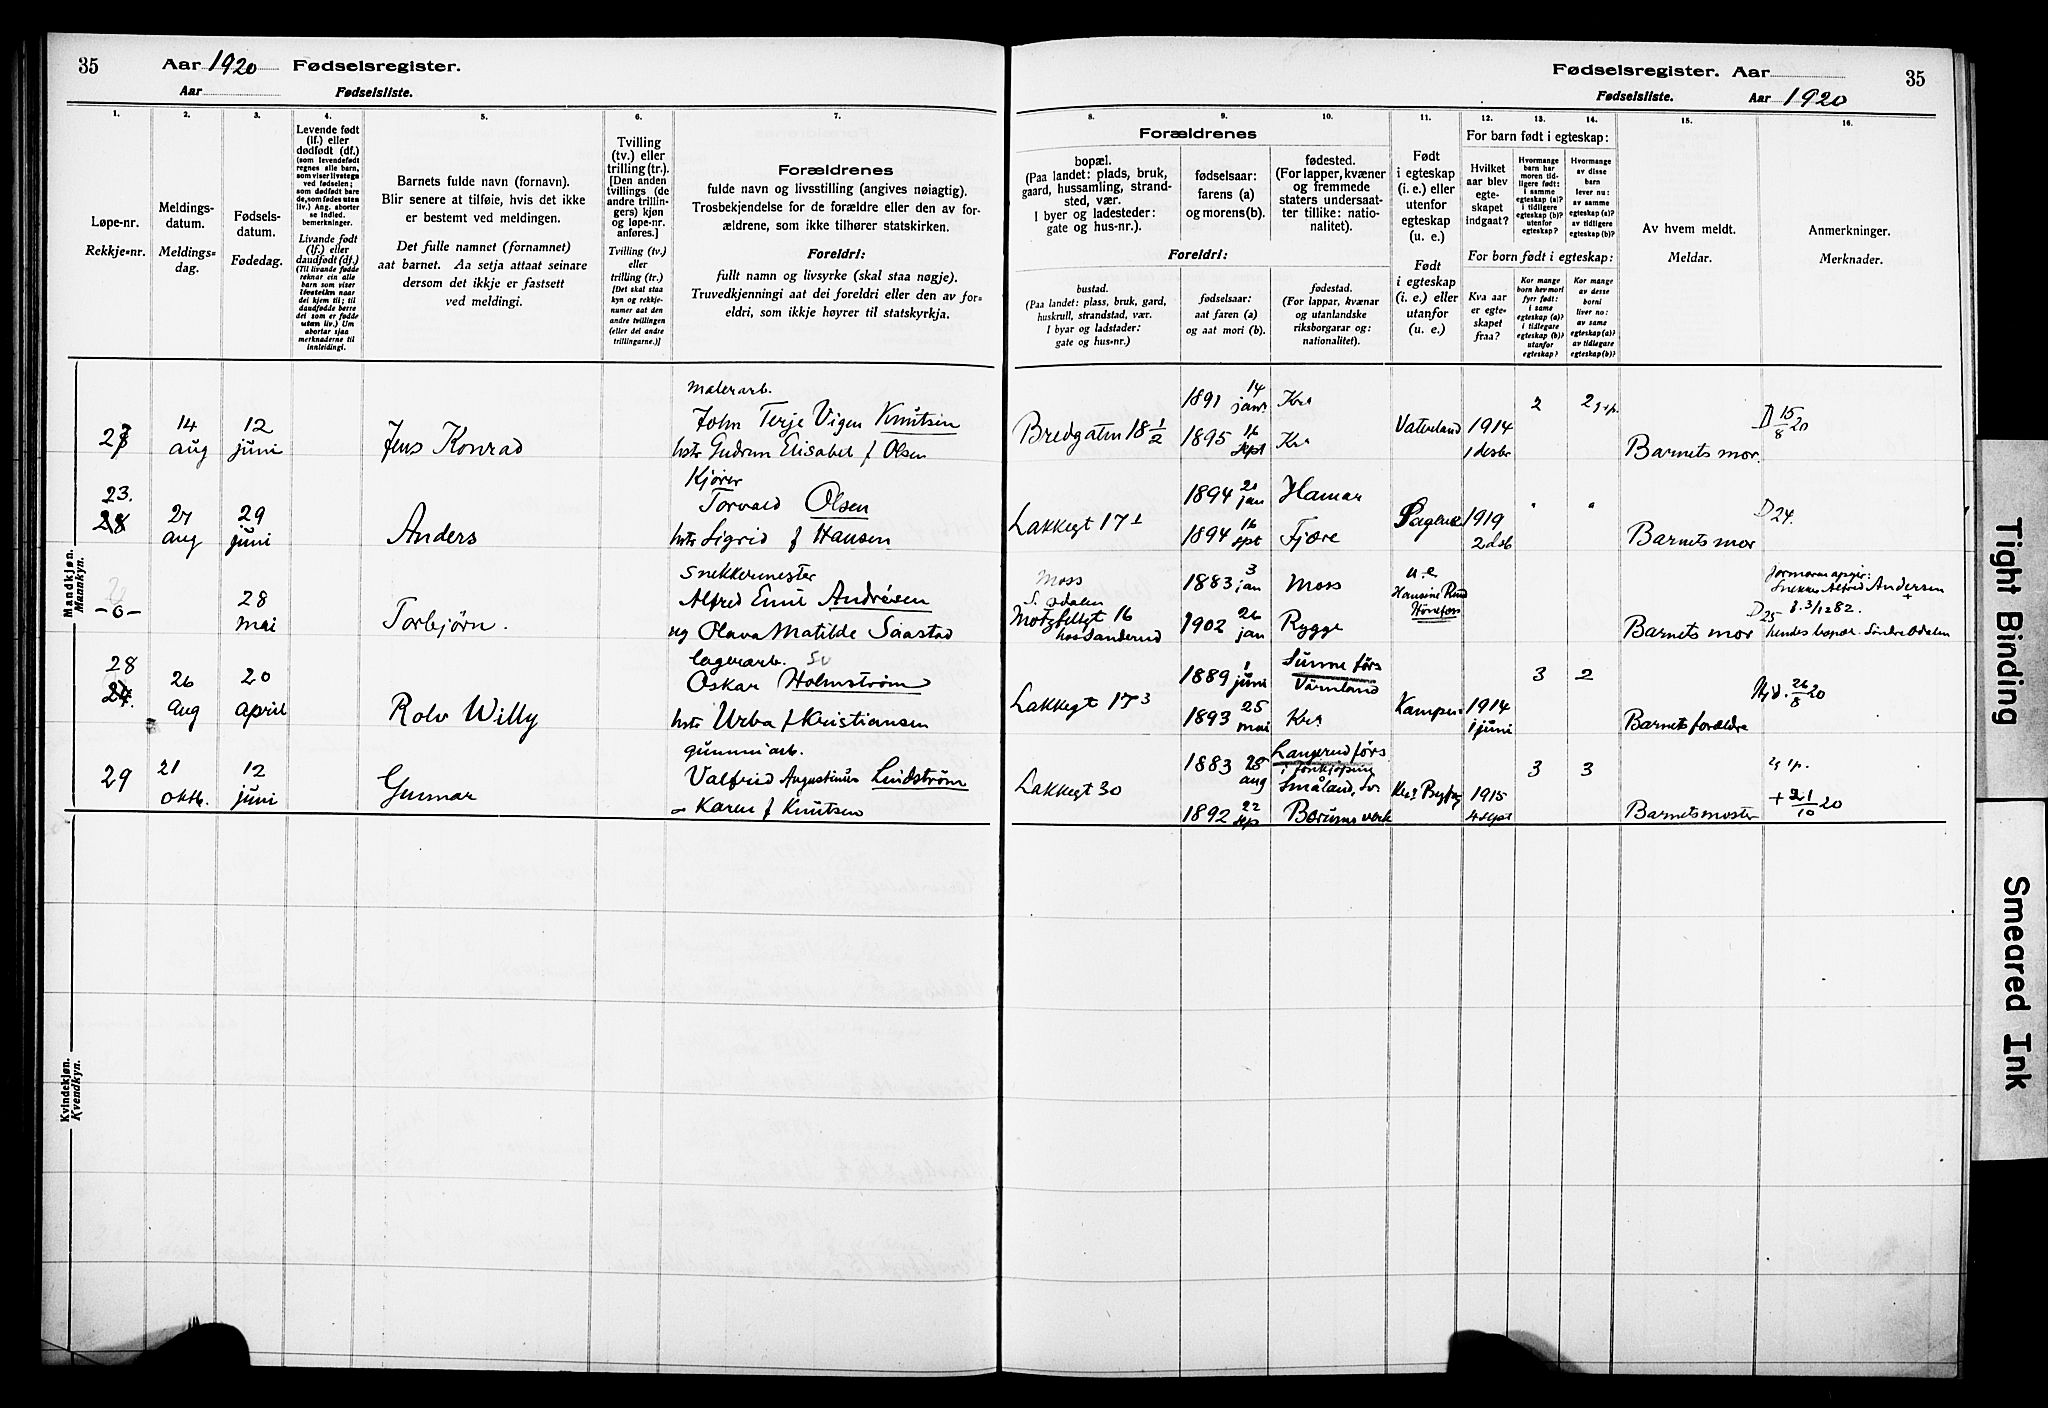 35
Aar 1920 Fødselsregister.
Aar Fødselsliste.
1. 2. 3. 4. 5. 6. 7.
Løpe-nr.
Rekkje-nr.
Meldings-
datum.
Meldings-
dag.
Fødsels-
datum.
Fødedag.
Levende født
(lf.) eller
dødfødt (df.)
(som levendefødt
regnes alle barn,
som viser livstegn
ved fødselen;
som dødfødt bare
de, som fødes uten
liv.) Ang. aborter
se indled.
bemerkninger.
Livande født
(lf.) eller
daudfødt (df.)
(Til livande fødde
reknar ein alle
barn som viser
livsteikn naar
dei kjem til; til
daudfødde berre
dei som er fødde
utan liv.) Um
abortar sjaa
merknaderne til
innleidingi.
Barnets fulde navn (fornavn).
Blir senere at tilføie, hvis det ikke
er bestemt ved meldingen.
Det fulle namnet (fornamnet)
aat barnet. Aa setja attaat seinare
dersom det ikkje er fastsett
ved meldingi.
Tvilling
(tv.) eller
trilling (tr.)
[Den anden
tvillings (de
andre trillin-
gers) kjøn
og løpe-nr.
anføres.]
Tvilling (tv.)
eller
trilling (tr.)
[Det skal staa
kyn og rekkje-
numer aat den
andre tvillingen
(eller dei andre
trillingarne.)]
Forældrenes
fulde navn og livsstilling (angives nøiagtig).
Trosbekjendelse for de forældre eller den av for-
ældrene, som ikke tilhører statskirken.
Foreldri:
fullt namn og livsyrke (skal staa nøgje).
Truvedkjenningi aat dei foreldri eller den av for-
eldri, som ikkje høyrer til statskyrkja.
Mandkjøn.
Mannkyn.
Malerarb.
27 14 12 John Terje Vigen Knutsen
aug juni Jens Konrad hstr Gudrun Elisabet f Olsen
23. Kjører
28 27 29 Torvald Olsen
aug juni Anders hstr Sigrid f Hansen
Snekkermester
-0- 28 Alfred Emil Andrésen
mai Torbjørn. ug Olava Matilde Saastad
28 lagerarb. Sv
24. 26 20 Oskar Holmström
aug april Rolv Willy hstr Urba f Kristiansen
gummiarb.
29 21 12 Valfrid Augustinus Lindström
oktb. juni Gunnar - Karen f Knutsen
Kvindekjøn.
Kvendkyn.
Fødselsregister. Aar 35
Fødselsliste. Aar 1920
8. 9. 10. 11. 12. 13. 14. 15. 16.
Forældrenes
bopæl.
(Paa landet: plads, bruk,
gaard, hussamling, strand-
sted, vær.
I byer og ladesteder:
gate og hus-nr.).
fødselsaar:
farens (a)
og morens (b).
fødested.
(For lapper, kvæner
og fremmede
staters undersaat-
ter tillike: natio-
nalitet).
Foreldri:
bustad.
(Paa landet: plass, bruk, gard,
huskrull, strandstad, vær.
I byar og ladstader:
gate og hus-nr.)
fødselsaar:
aat faren (a)
og aat mori (b).
fødestad.
(For lappar, kvænar
og utanlandske
riksborgarar og:
nationalitet).
Født
i egteskap
(i. e.) eller
utenfor
egteskap
(u. e.)
Født
i egteskap
(i. e.) eller
utanfor
(u. e.)
For barn født i egteskap:
Hvilket
aar blev
egte-
skapet
indgaat?
Hvormange
barn har
moren tid-
ligere født:
i samme
egteskap (a)?
i tidligere
egteskap (b)?
utenfor
egteskap?
Hvormange
av disse
barn
lever nu:
av samme
egteskap (a)?
av tidligere
egteskap (b)?
For born født i egteskap:
Kva aar
er egte-
skapet
fraa?
Kor mange
born hev mori
fyrr født:
i same
egteskap (a)?
i tidlegare
egteskap (b)?
utanfor
egteskap?
Kor mange
av desse
borni
liver no:
av same
egteskap (a)?
av tidlegare
egteskap (b)?
Av hvem meldt.
Meldar.
Anmerkninger.
Merknader.
Bredgaten 18 1/2 1891 14 janr Kra Vaterland 1914 1 desbr 2 2 Barnets mor. D 15/8 20
1895 16 sept Kra
Lakkegt 17 1 1894 20 jan Hamar Sagene 1919 2 dsb " " Barnets mor D 24.
1894 16 spt Fjære
Moss
S. Odalen
Motzfeldtgt 16
hos Sanderud
1883 3 jan Moss u.e Hønefoss Barnets mor
1902 26 jan Rygge
Alfred Andersen
D 25 f. 3/1 2 82.
hendes bopæl. Söndre Odalen
Lakkegt 17 3 1889 1 juni Sunne förs Värmland Kampen 1914 1 juni 3 2 Barnets forældre Hjd. 26/8 20
1893 25 mai Kra
Lakkegt 30 1883 28 aug förs i Jönköping Småland, Sv. 1915 4 sept 3 3 Barnets moster + 21/10 20
1892 22 sep Bærums verk
Tight Binding
Smeared Ink